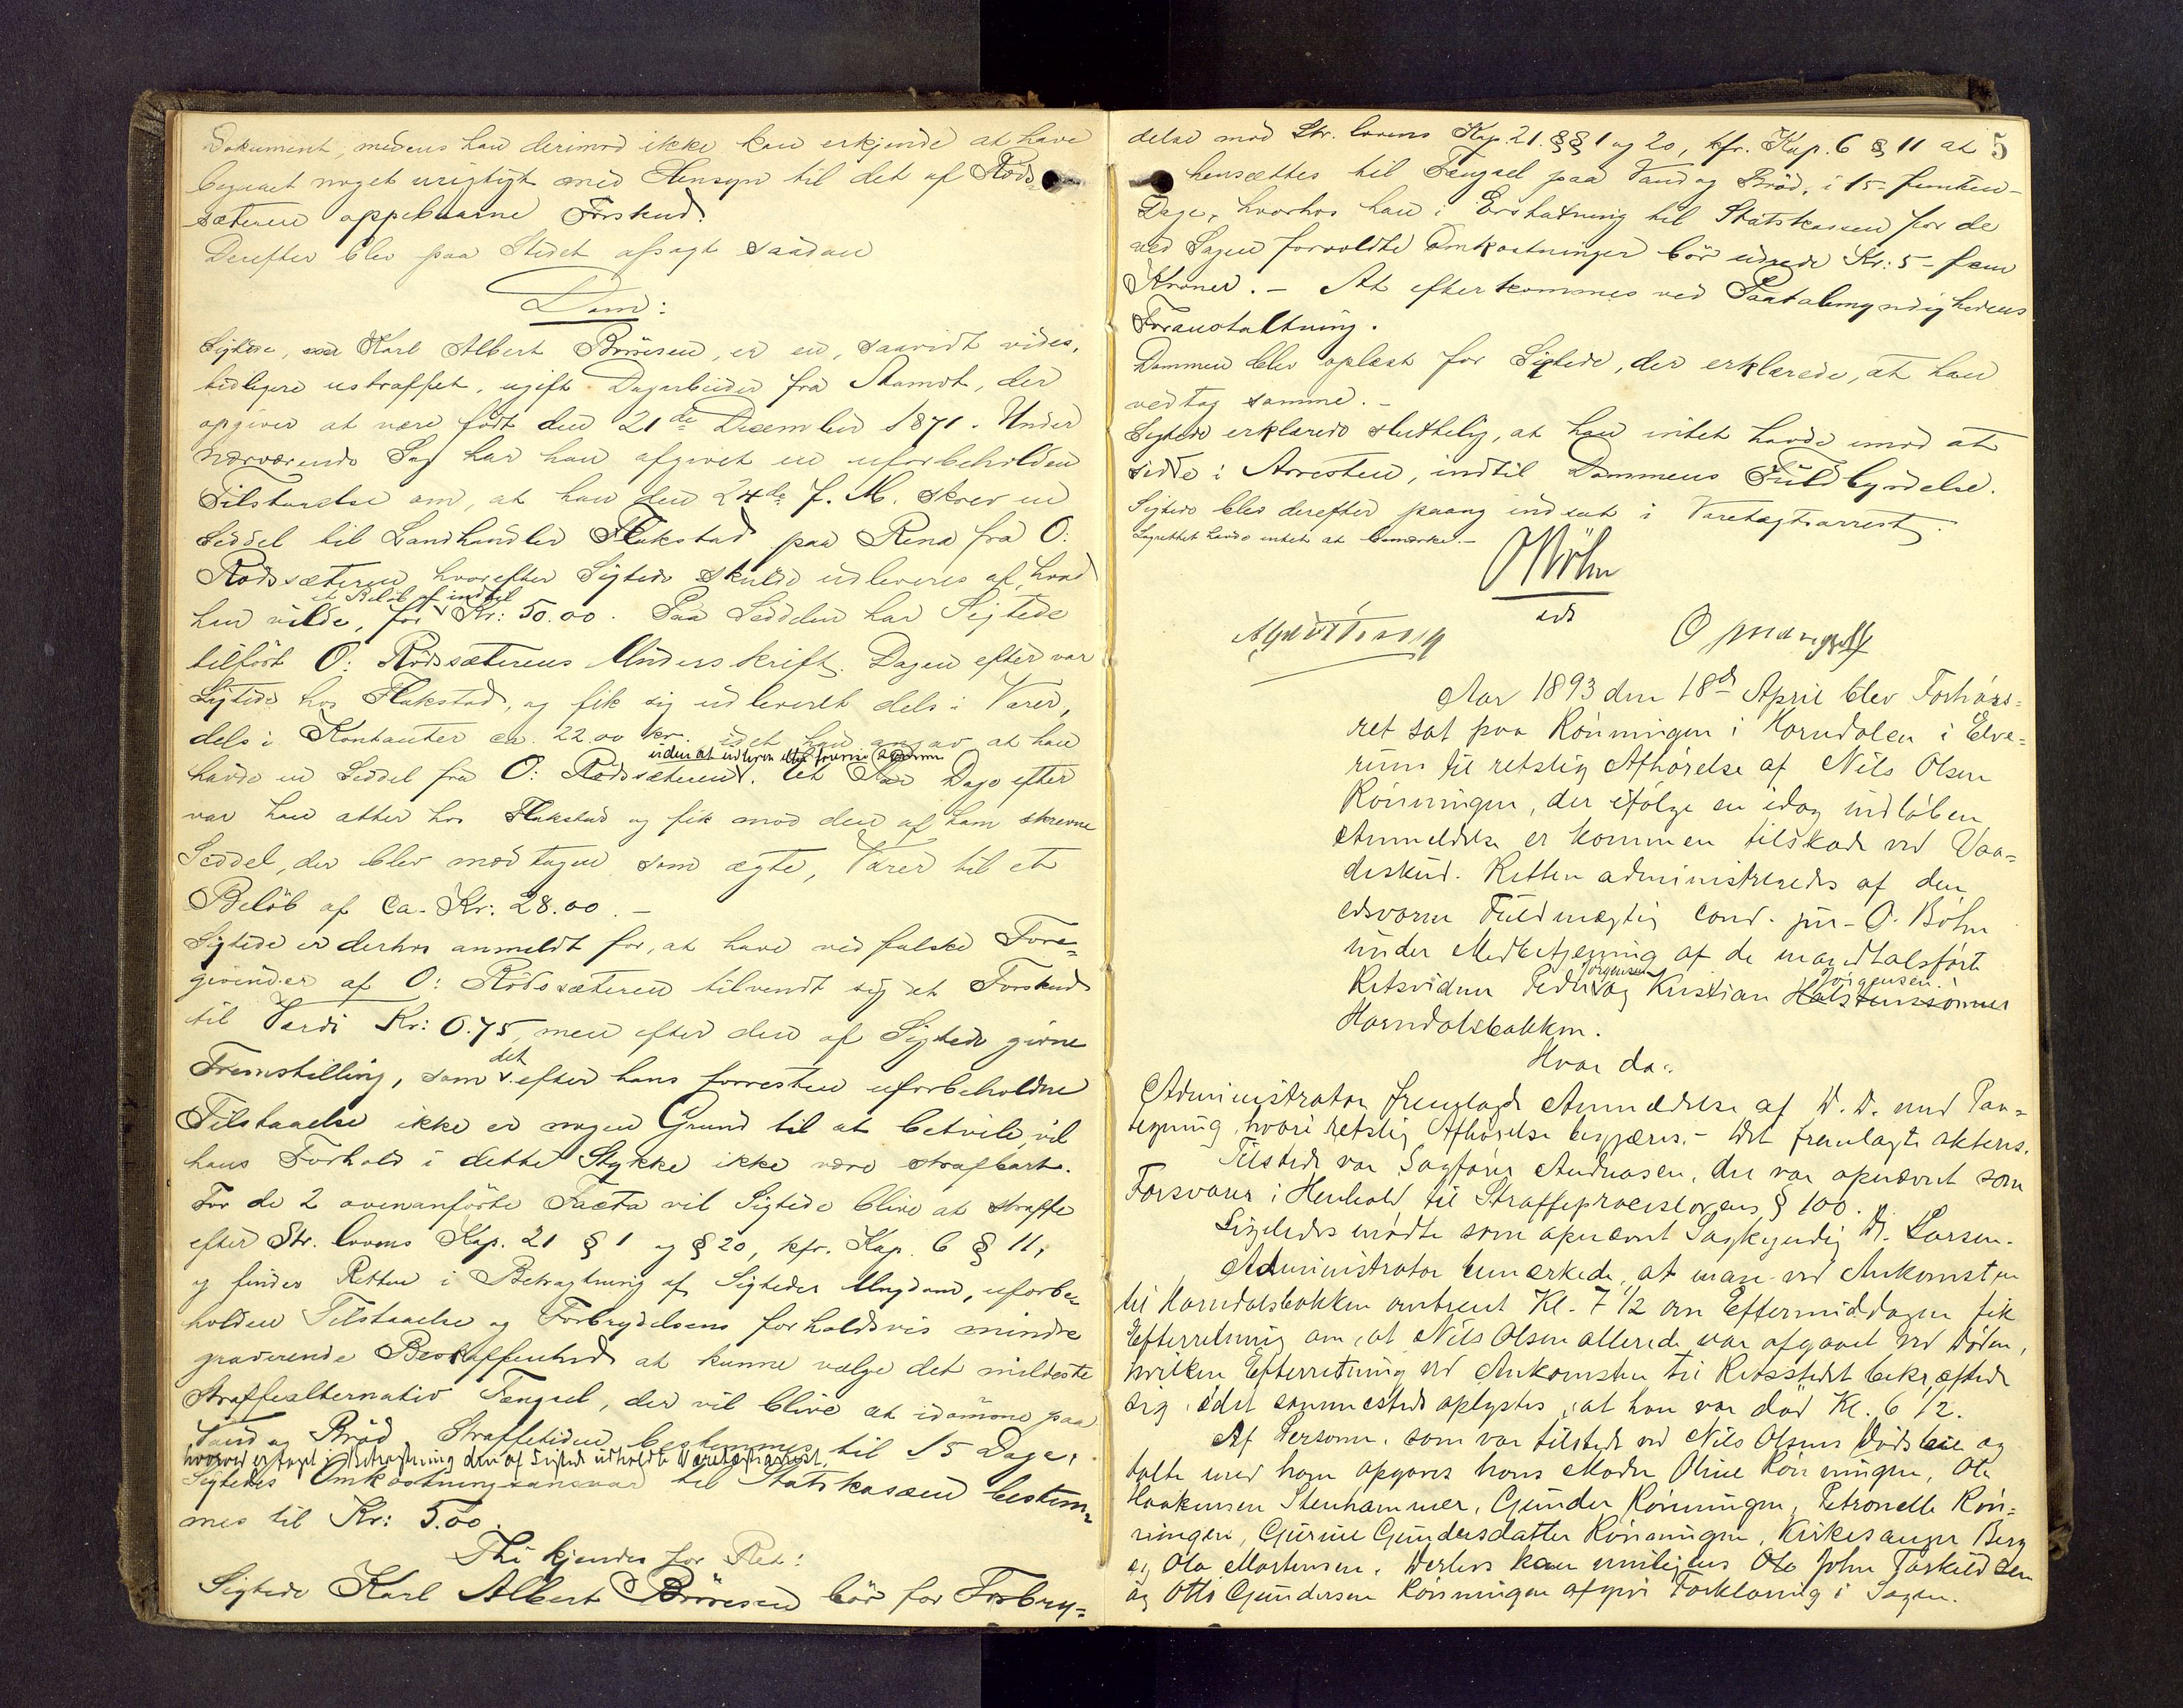 Dokument, medens han derimod ikke kan erkjende at have
begaaet noget urigtigt med Hensyn til det af Röds-
sæteren oppebaarne Forskud.
Derefter blev paa Stedet afsagt saadan
Dom:
Sigtede, Karl Albert Brösesen, er en, saavidt vides,
tidligere ustraffet, ugift Dagarbeider fra Aamot, der
opgiver at være født den 21de December 1871. Under
nærværende Sag har han afgivet en uforbeholden
Tilstaaelse om, at han den 24de f. M. skrev en
Seddel til Landhandler Flakstad paa Rena fra O:
Rödssæteren, hvorefter Sigtede skulde udleveres af, hvad
et Beløb af indtil
han vilde, for Kr: 50.00. Paa Seddelen har Sigtede
tilført O: Rödssæterens Underskrift. Dagen efter var
Sigtede hos Flakstad, og fik sig udleveret dels i Varer,
dels i Kontanter ca. 22.00 Kr. idet han angav at han
uden at udlevere eller forevise saadan
havde en Seddel fra O: Rödssæteren. Et Par Dage efter
var han atter hos Flakstad og fik mod den af ham skrevne
Seddel, der blev modtagen som ægte, Varer til et
Beløb af ca. Kr: 28.00. –
Sigtede er derhos anmeldt for, at have ved falske Fore-
givender af O: Rödssæteren tilvendt sig et Forskud
til Værdi Kr: 0.75, men efter den af Sigtede givne
det
Fremstilling, som efter hans forresten uforbeholdne
Tilstaaelse ikke er nogen Grund til at betvile, vil
hans Forhold i dette Stykke ikke være strafbart.
For de 2 ovenanførte Facta vil Sigtede blive at straffe
efter Str. lovens Kap. 21 § 1 og § 20, kfr. Kap. 6 § 11,
og finder Retten i Betragtning af Sigtedes Ungdom, uforbe-
holdne Tilstaaelse og Forbrydelsens forholdsvis mindre
graverende Beskaffenhed at kunne vælge det mildeste
Straffealternativ Fængsel, der vil blive at idømme paa
Vand og Brød. Straffetiden bestemmes til 15 Dage,
hvorved er taget i Betragtning den af Sigtede udholdte Varetægtsarrest.
Sigtedes Omkostningsansvar til Statskassen bestem-
mes til Kr: 5.00.
Thi kjendes for Ret:
Sigtede Karl Albert Brösesen bör for Forbry-
5
delse mod Str. lovens Kap. 21. §§ 1 og 20, kfr. Kap. 6 § 11 at
hensættes til Fængsel paa Vand og Brød, i 15 – femten –
Dage, hvorhos han i Erstatning til Statskassen for de
ved Sagen forvoldte Omkostninger bör udrede Kr: 5 – fem
Kroner. – At efterkommes ved Paatalemyndighedens
Foranstaltning.
Dommen blev oplæst for Sigtede, der erklærede, at han
vedtog samme. –
Sigtede erklærede sluttelig, at han intet havde imod at
sidde i Arresten, indtil Dommens Fuldbyrdelse.
Sigtede blev derefter paany indsat i Varetægtsarrest.
Lagrettet havde intet at bemærke. –
O Böhm
eds
Aar 1893 den 18de April blev Forhörs-
ret sat paa Rönningen i Horndalen i Elve-
rum til retslig Afhörelse af Nils Olsen
Rönningen, der ifölge en idag indløben
Anmeldelse er kommen tilskade ved Vaa-
deskud. Retten administreredes af den
edsvorne Fuldmægtig cand. jur. O. Böhm
under Medbetjening af de mandtalsførte
Jörgensen Jörgensen.
Retsvidner Peder og Kristian Halstenssönner
Horndalsbakken.
Hvor da:
Administrator fremlagde Anmeldelse af D. D. med Paa-
tegning, hvori retslig Afhörelse begjæres. – Det fremlagte akteres.
Tilstede var Sagfører Andreasen, der var opnævnt som
Forsvarer i Henhold til Straffeproceslovens § 100.
Ligeledes mødte som opnævnt Sagkyndig Dr. Larsen.
Administrator bemærkede, at man ved Ankomsten
til Horndalsbakken omtrent Kl. 7 1/2 om Eftermiddagen fik
Efterretning om, at Nils Olsen allerede var afgaaet ved Døden,
hvilken Efterretning ved Ankomsten til Retsstedet bekræftede
sig, idet sammesteds oplystes, at han var död Kl. 6 1/2.
Af Personer, som var tilstede ved Nils Olsens Dödsleie og
talte med ham opgaves hans Moder Oline Rönningen, Ole
Haakensen Stenhammer, Gunder Rönningen, Petronelle Rön-
ningen, Gurine Gundersdatter Rönningen, Kirkesanger Berg
og Ole Mortensen. Derhos kan muligens Ole John Tarkildsen
og Otto Gundersen Rönningen afgive Forklaring i Sagen.